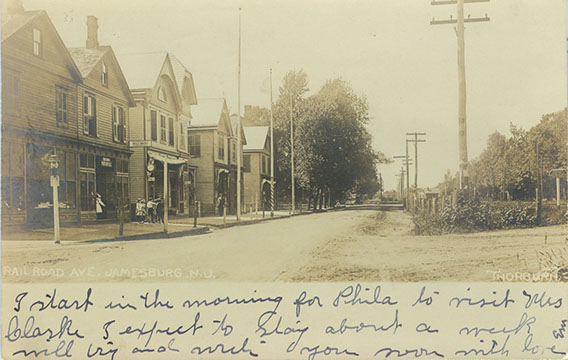 RAILROAD AVE. JAMESBURG, N.J.
THORBURN
I start in the morning for Phila to visit Mrs
Clarke I expect to stay about a week
will try and write you soon with love